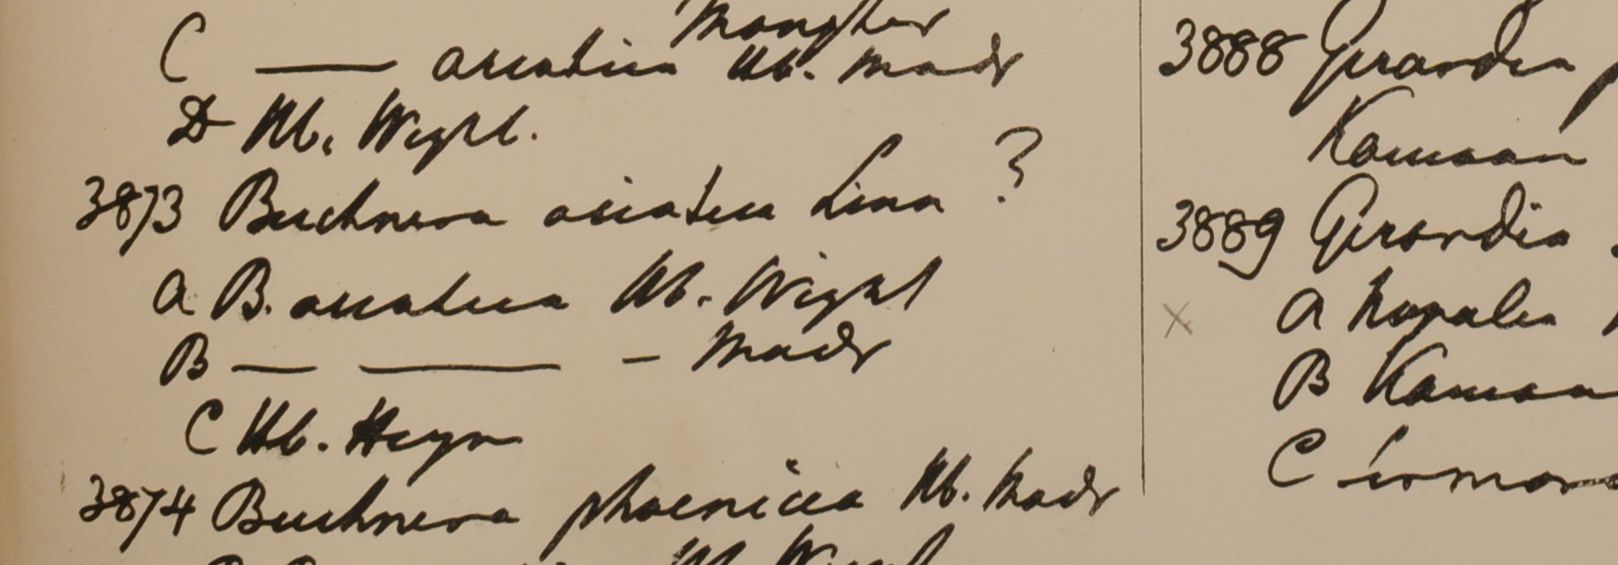 Monghir
C — asiatica Hb. Madr
D Hb. Wight.
3873 Buchnera asiatica Linn ?
a B. asiatica Hb. Wight
B — — — Madr
C Hb. Heyn
3874 Buchnera phoenicea Hb. Madr
3888 Gerardia
Kamaon
3889 Gerardia
a Nepalia
B Kamaon
C Sirmore